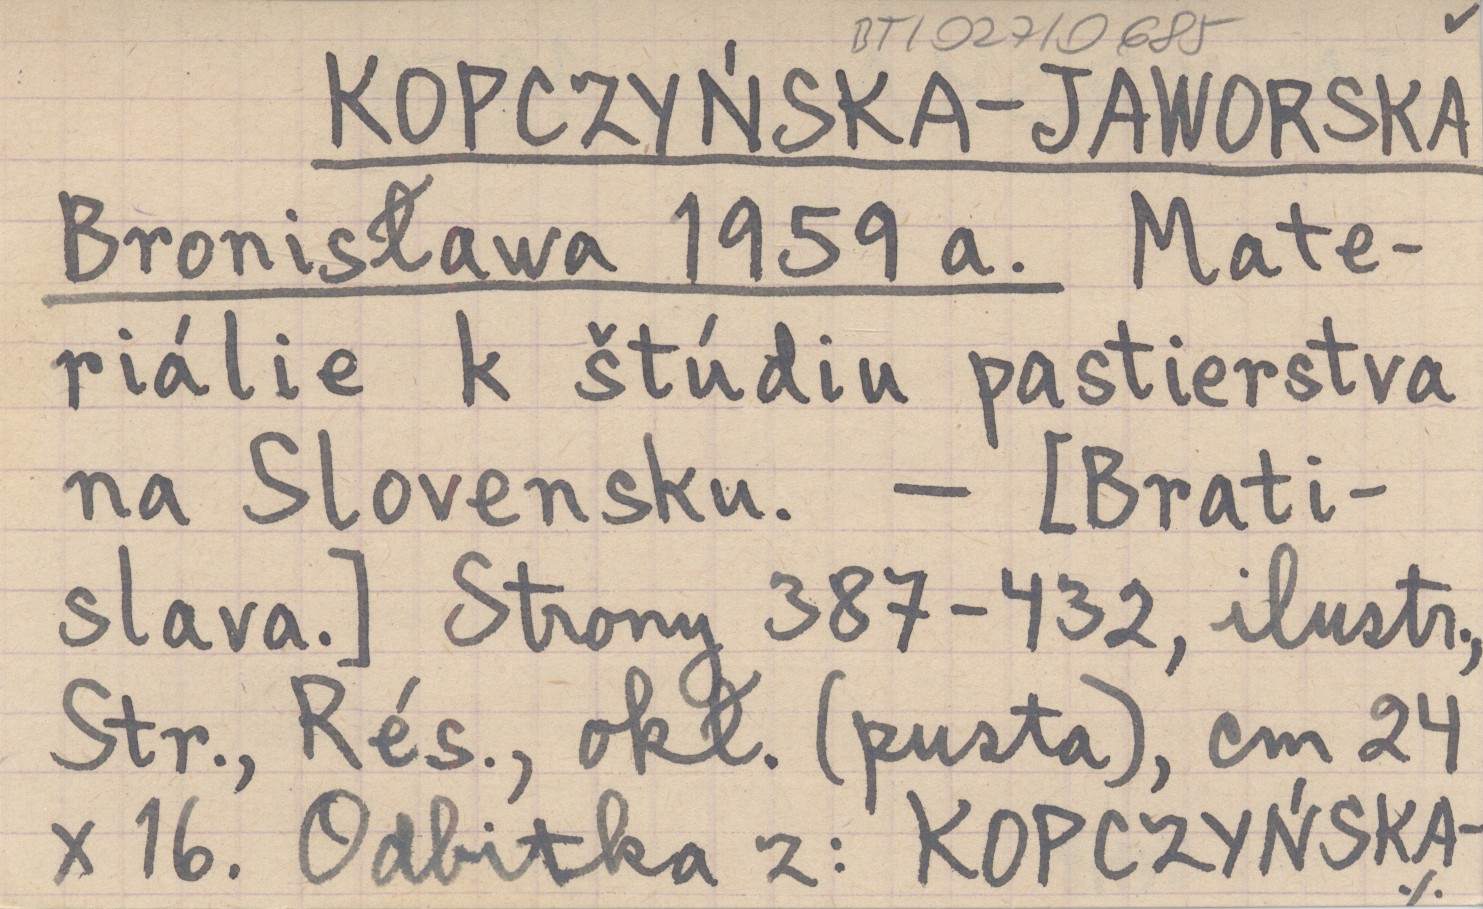 BT/02710685 ✓
KOPCZYŃSKA-JAWORSKA
Bronisława 1959 a. Mate-
riálie k štúdiu pastierstva
na Slovensku. — [Brati-
slava.] Strony 387-432, ilustr.,
Str., Rés., okł. (pusta), cm 24
x 16. Odbitka z: KOPCZYŃSKA-
./.